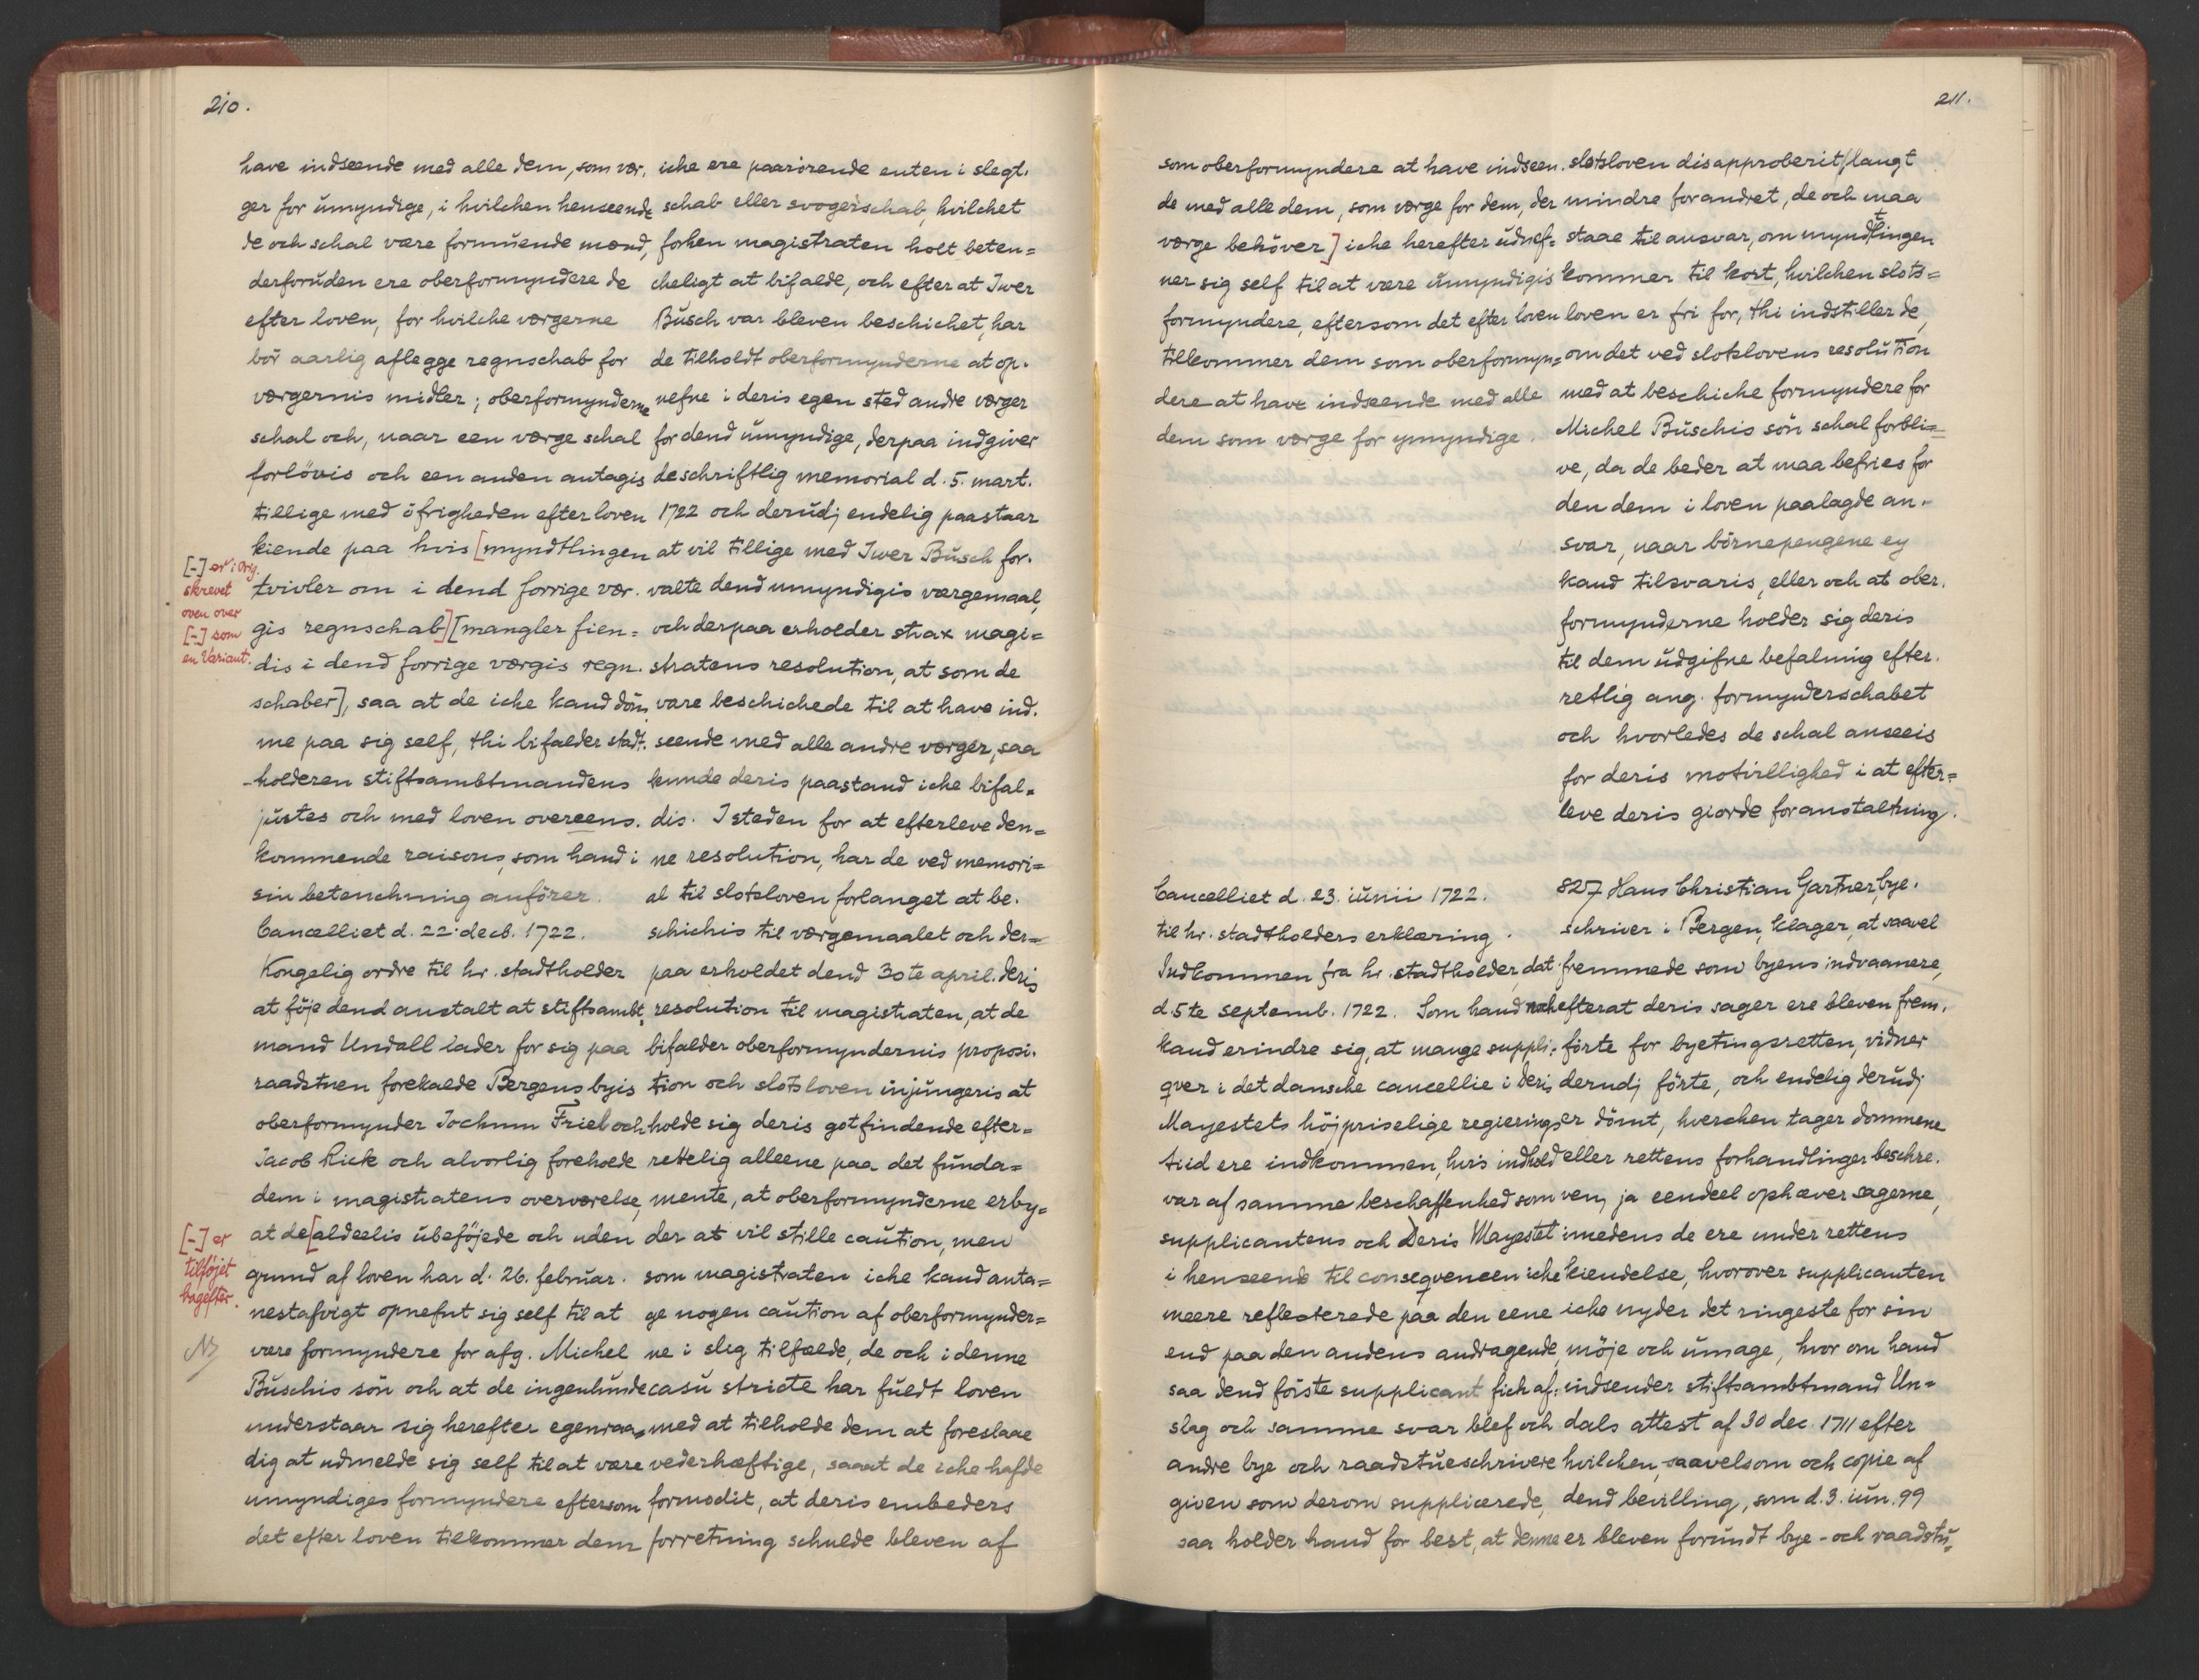 210.
have indseende med alle dem, som vær.
ger for umyndige, i hvilchen henseende
de och schal være formuende mænd,
derforuden ere oberformyndere de
efter loven, for hvilche værgerne
bör aarlig aflegge regnschab for
værgernis midler; oberformynderne
schal och, naar een værge schal
forlövis och een anden antagis
tillige med öfrigheden efter loven
kiende paa hvis [myndtlingen
tvivler om i dend forrige vær.
gis regnschab] [mangler fien=
dis i dend forrige værgis regn.
schaber], saa at de iche kand döm
me paa sig self, thi bifalder stadt.
holderen stiftsambtmandens
justes och med loven overeens.
kommende raisons, som hand i
sin betenchning anförer.
Cancelliet d. 22. decb. 1722.
Kongelig ordre til hr. stadtholder
at föje dend anstalt at stiftsambt,
mand Undall lader for sig paa
raadstuen forekalde Bergens byis
oberformynder Jochum Friel och
Jacob Kick och alvorlig foreholde
dem i magistratens overværelse,
at de [aldeelis ubeföjede och uden
grund af loven har d. 26. februar.
nestafvigt opnefnt sig self til at
være formyndere for afg. Michel
Buschis sön och at de ingenlunde
understaar sig herefter egenraa=
dig at udmelde sig self til at være
umyndiges formyndere eftersom
det efter loven tilkommer dem
[-] er i Orig.
skrevet
oven over
[-] som
en Variant.
[-] er
tilföjet
bagefter.
iche ere paarörende enten i slegt.
schab eller svogerschab, hvilchet
forhen magistraten holt beten=
cheligt at bifalde, och efter at Iwer
Busch var bleven beschichet, har
de tilholdt oberformynderne at op.
nefne i deris egen sted andre værger
for dend umyndige, derpaa indgiver
de schriftlig memorial d. 5. mart.
1722 och derudj endelig paastaar
at vil tillige med Iwer Busch for.
valte dend umyndigis værgemaal,
och derpaa erholder strax magi=
stratens resolution, at som de
vare beschichede til at have ind.
seende med alle andre værger, saa
kunde deris paastand iche bifal=
dis. I steden for at efterleve den=
ne resolution, har de ved memori=
al til slotsloven forlanget at be.
schichis til værgemaalet och der=
paa erholdet dend 30te april. deris
resolution til magistraten, at de
bifalder oberformyndernis proposi.
tion och slotsloven injungeris at
holde sig deris gotfindende efter=
rettelig alleene paa det funda=
mente, at oberformynderne erby=
der at vil stille caution, men
som magistraten iche kand anta=
ge nogen caution af oberformynder=
ne i slig tilfælde, de och i denne
casu stricte har fuldt loven
med at tilholde dem at foreslaae
vederhæftige, saaat de iche hafde
formodit, at deris embeders
forretning schulde bleven af
211.
som oberformyndere at have indseen.
de med alle dem, som værge for dem, der
værge behöver] iche herefter udnef=
ner sig self til at være umyndigis
formyndere, eftersom det efter loven
tilkommer dem som oberformyn=
dere at have indseende med alle
dem som værge for ymyndige.
slotsloven disapproberit, langt
mindre forandret, de och maa
staae til ansvar, om myndtlingen
kommer til kort, hvilchen slots=
loven er fri for, thi indstiller de,
om det ved slotslovens resolution
med at beschiche formyndere for
Michel Buschis sön schal forbli=
ve, da de beder at maa befries for
den dem i loven paalagde an.
svar, naar börnepengene ey
kand tilsvaris, eller och at ober.
formynderne holder sig deris
til dem udgifne befalning efter.
retlig ang. formynderschabet
och hvorledes de schal anseeis
for deris motvillighed i at efter=
leve deris giorde foranstaltning.
Cancelliet d. 23. iunii 1722.
til hr. stadtholders erklæring.
Indkommen fra hr. stadtholder, dat.
d. 5te septemb. 1722. Som hand noch
kand erindre sig, at mange suppli:
qver i det dansche cancellie i deris
Mayestets höjpriselige regierings
tiid ere indkommen, hvis indhold
var af samme beschaffenhed som
supplicantens och Deris Mayestet
i henseende til conseqvencen iche
meere reflecterede paa den eene
end paa den andens andragende,
saa dend förste supplicant fich af:
slag och samme svar blef och
andre bye och raadstueschrivere
given som derom supplicerede,
saa holder hand for best, at denne
827 Hans Christian Gartner, bye.
schriver i Bergen, klager, at saavel
fremmede som byens indvaanere,
efterat deris sager ere bleven frem.
förte for byetingsretten, vidner
derudj förte, och endelig derudj
er dömt, hverchen tager dommene
eller rettens forhandlinger beschre.
ven, ja eendeel ophæver sagerne,
imedens de ere under rettens
kiendelse, hvorover supplicanten
iche nyder det ringeste for sin
möje och umage, hvor om hand
indsender stiftsambtmand Un=
dals attest af 30 dec. 1711 efter
hvilchen, saavelsom och copie af
dend bevilling, som d. 3. iun. 99
er bleven forundt bye- och raadstu=